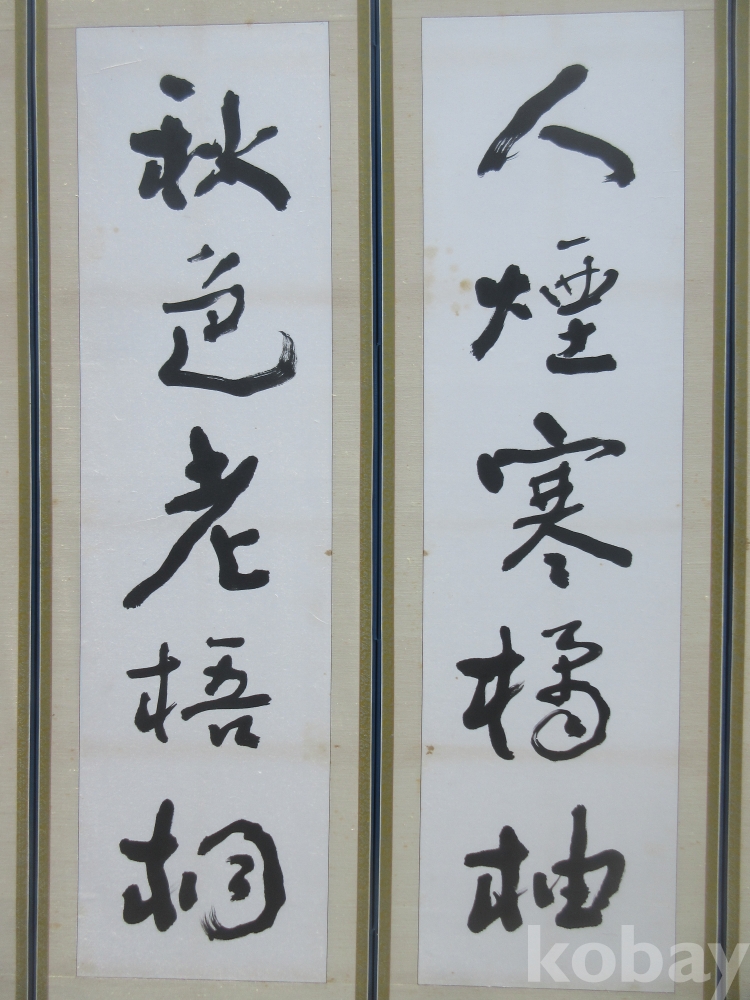 人煙寒橘柚
秋色老梧桐
kobay